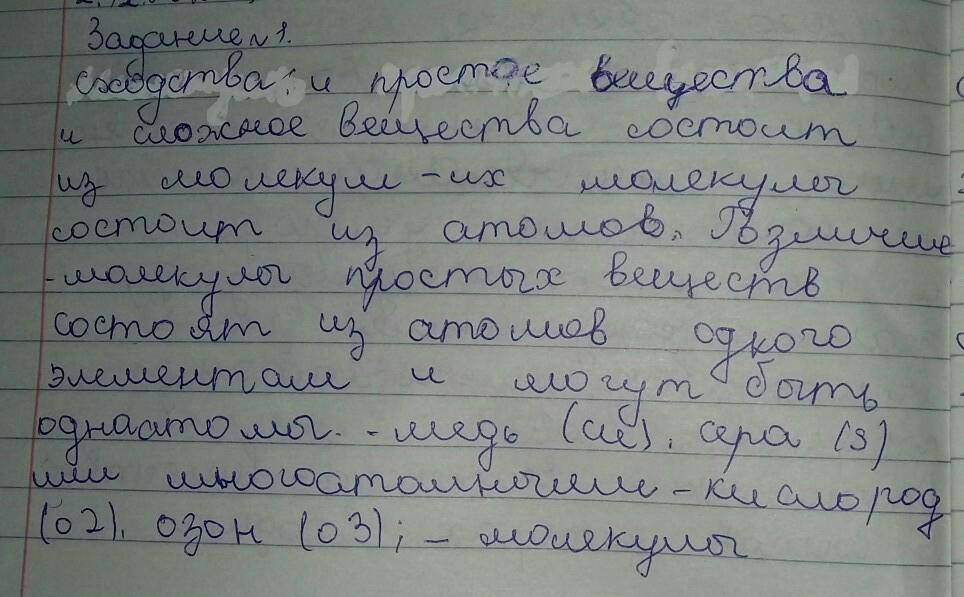 Задание №1.
сходства: и простое вещества
и сложное вещества состоит
из молекул - их молекулы
состоит из атомов. Различие
- молекулы простых веществ
состоят из атомов одного
элементам и могут быть
однаатомы. - медь (си). сера (s)
или многоатомными - кислород
(о2). озон (о3); - молекулы